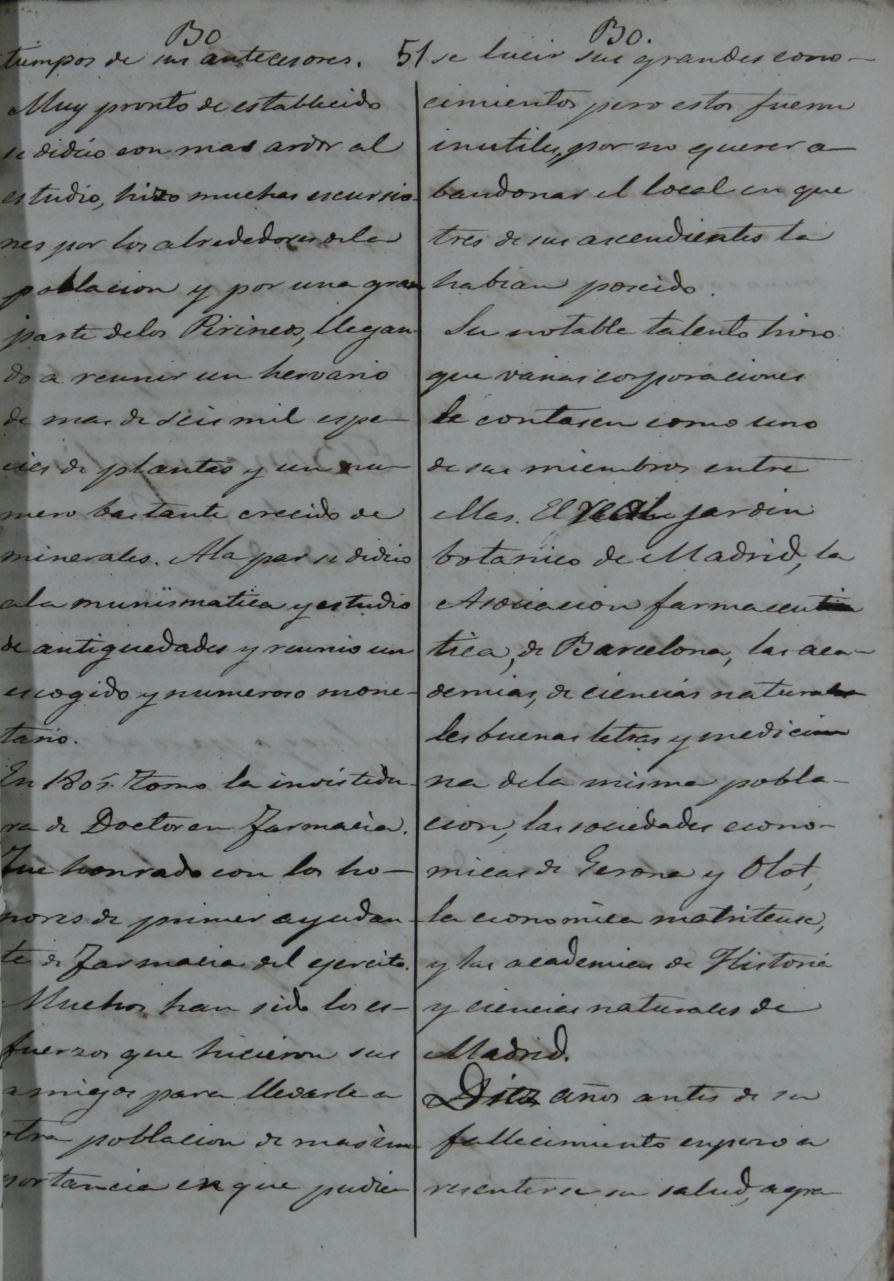 Bo
tiempos de sus antecesores.
Muy pronto de establecido
se didico con mas ardor al
estudio, hizo muchas escursio-
nes por los alrededores de la
poblacion y por una gran
parte de los Pirineos, llegan-
do a reunir un hervario
de mas de seis mil espe-
cies de plantas y un nu-
mero bastante crecido de
minerales. A la par se didico
a la munismatica y estudio
de antiguedades y reunio un
escogido y numeroso mone-
tario.
En 1805. tomo la investidu-
ra de Doctor en Farmacia.
Fue honrado con los ho-
nores de primer ayudan-
te de Farmacia del ejercito.
Muchos han sido los es-
fuerzos que hicieron sus
amigos para llevarle a
otra poblacion de mas im-
portancia en que pudie-
51
Bo.
se lucir sus grandes cono-
cimientos pero estos fueron
inutiles, por no querer a-
bandonar el local en que
tres de sus ascendientes la
habian poseido.
Su notable talento hizo
que varias corporaciones
le contasen como uno
de sus miembros entre
ellas. El real jardin
botanico de Madrid, la
Asociacion farmaceu
tica, de Barcelona, las aca-
demias, de ciencias natura
les buenas letras y medici
na de la misma pobla-
cion, las sociedades econo-
micas de Gerona y Olot,
la economica matritense,
y las academias de Historia
y ciencias naturales de
Madrid.
Diez años antes de su
fallecimiento empezo a
resentirse su salud, agra-